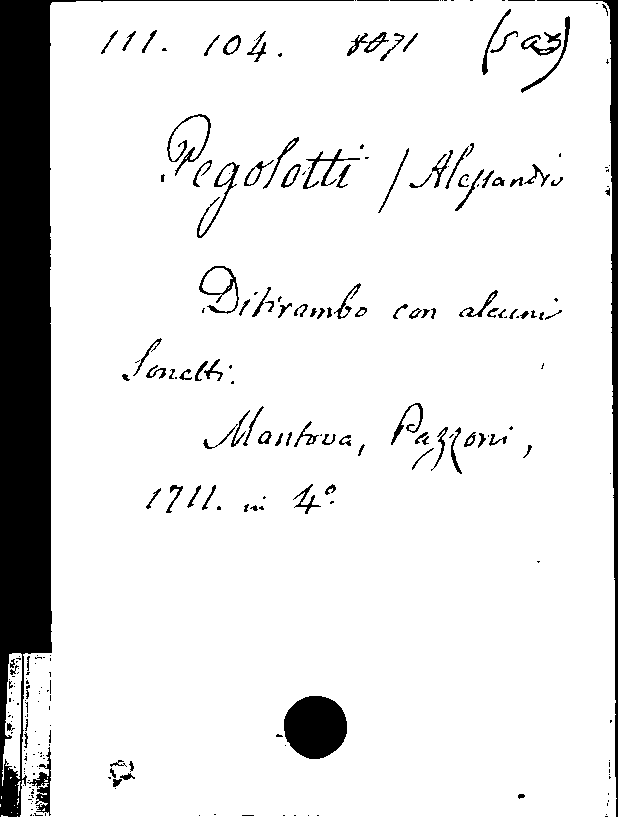 111. 104. 8071 (saz)
Pegolotti / Alessandro
Ditirambo con alcuni
Sonetti.
Mantova, Pazzoni,
1711. in 4º.